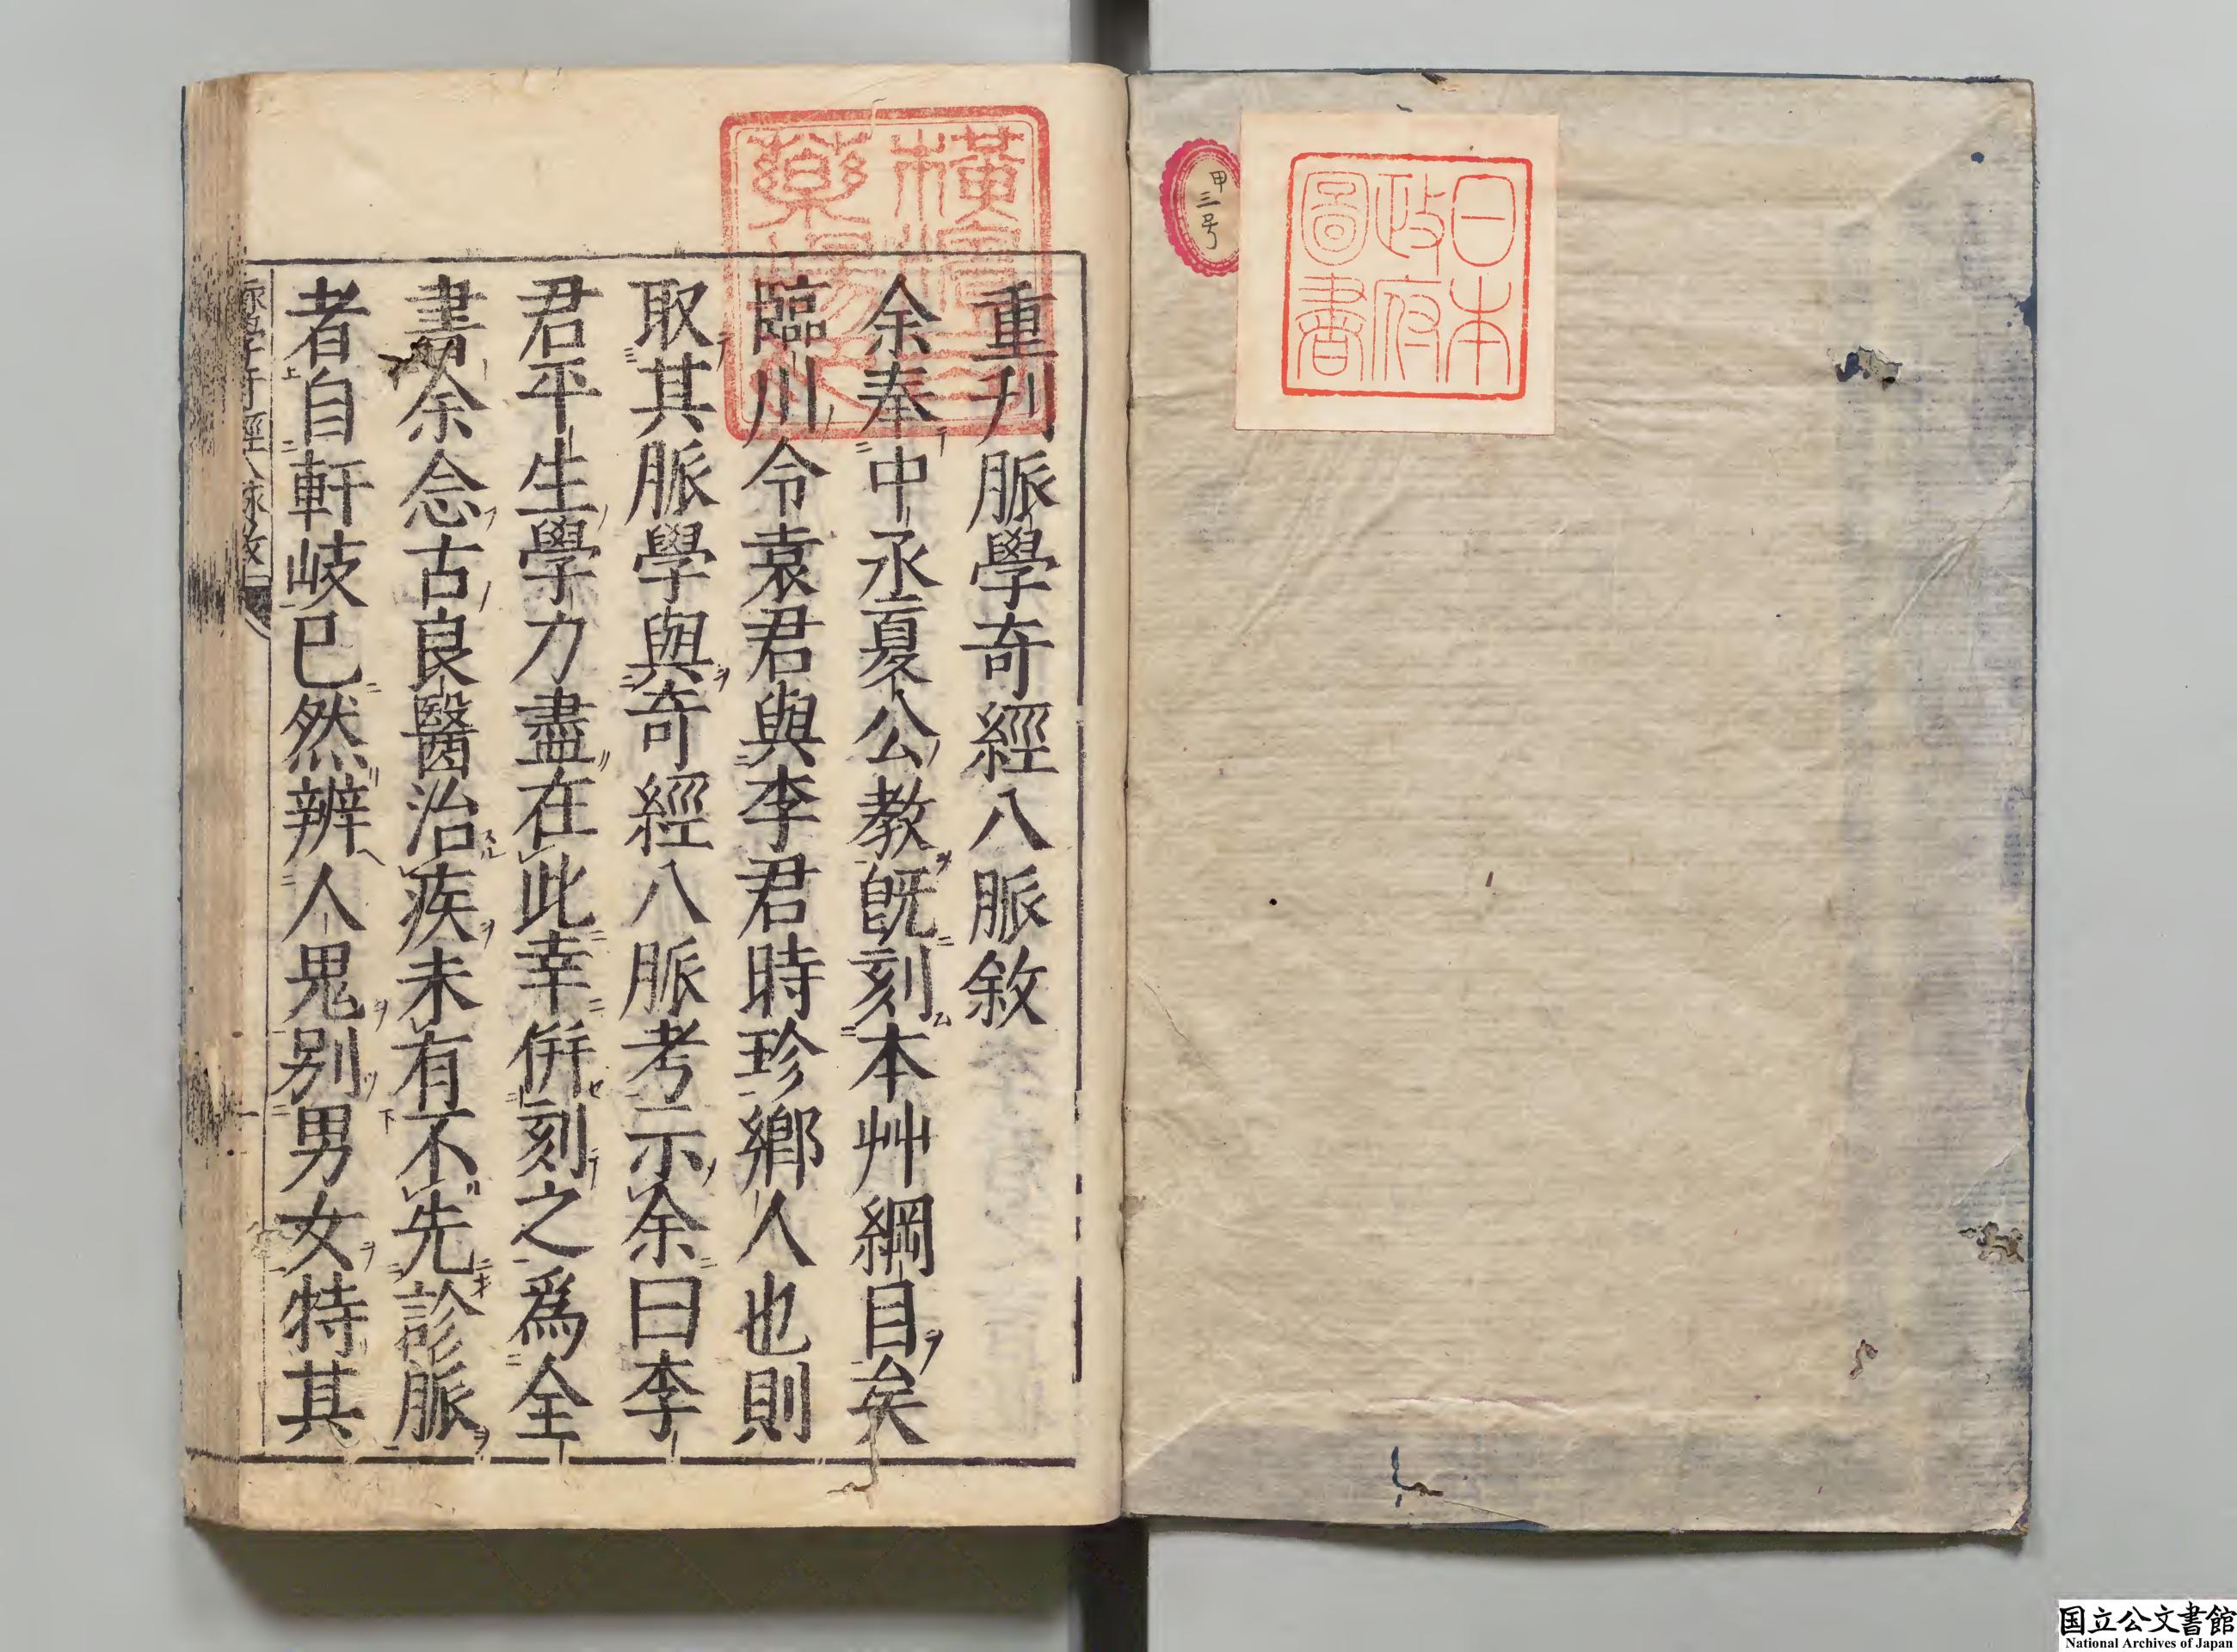 日本
政府
圖書
甲
三
号
重刋脈學奇經八脈敘
余奉中丞夏公教旣刻本艸綱目矣
臨川令袁君與李君時珍鄉人也則
取其脈學與奇經八脈考示余曰李
君平生學力盡在此幸併刻之爲全
書余念古良醫治疾未有不先診脈
者自軒岐已然辨人鬼别男女特其
国立公文書館
National Archives of Japan